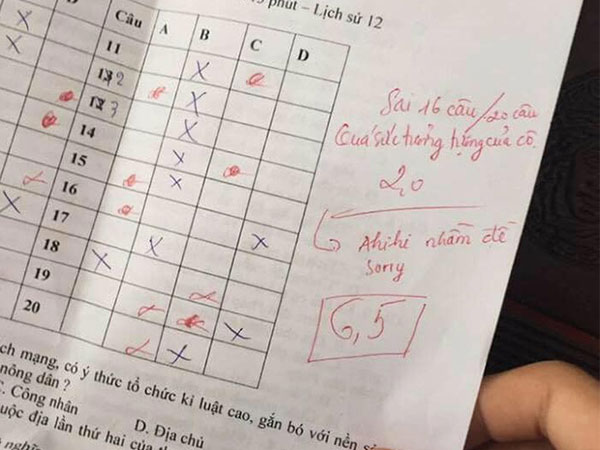 phút – Lịch sử 12
Câu A B C D
11
12
13
14
15
16
17
18
19
20
Sai 16 câu/20 câu
Quá sức tưởng tượng của cô.
2,0
Ahihi nhầm đề
sorry
6,5
ch mạng, có ý thức tổ chức kỉ luật cao, gắn bó với nền
nông dân ?
C. Công nhân D. Địa chủ
uộc địa lần thứ hai của
nghĩ